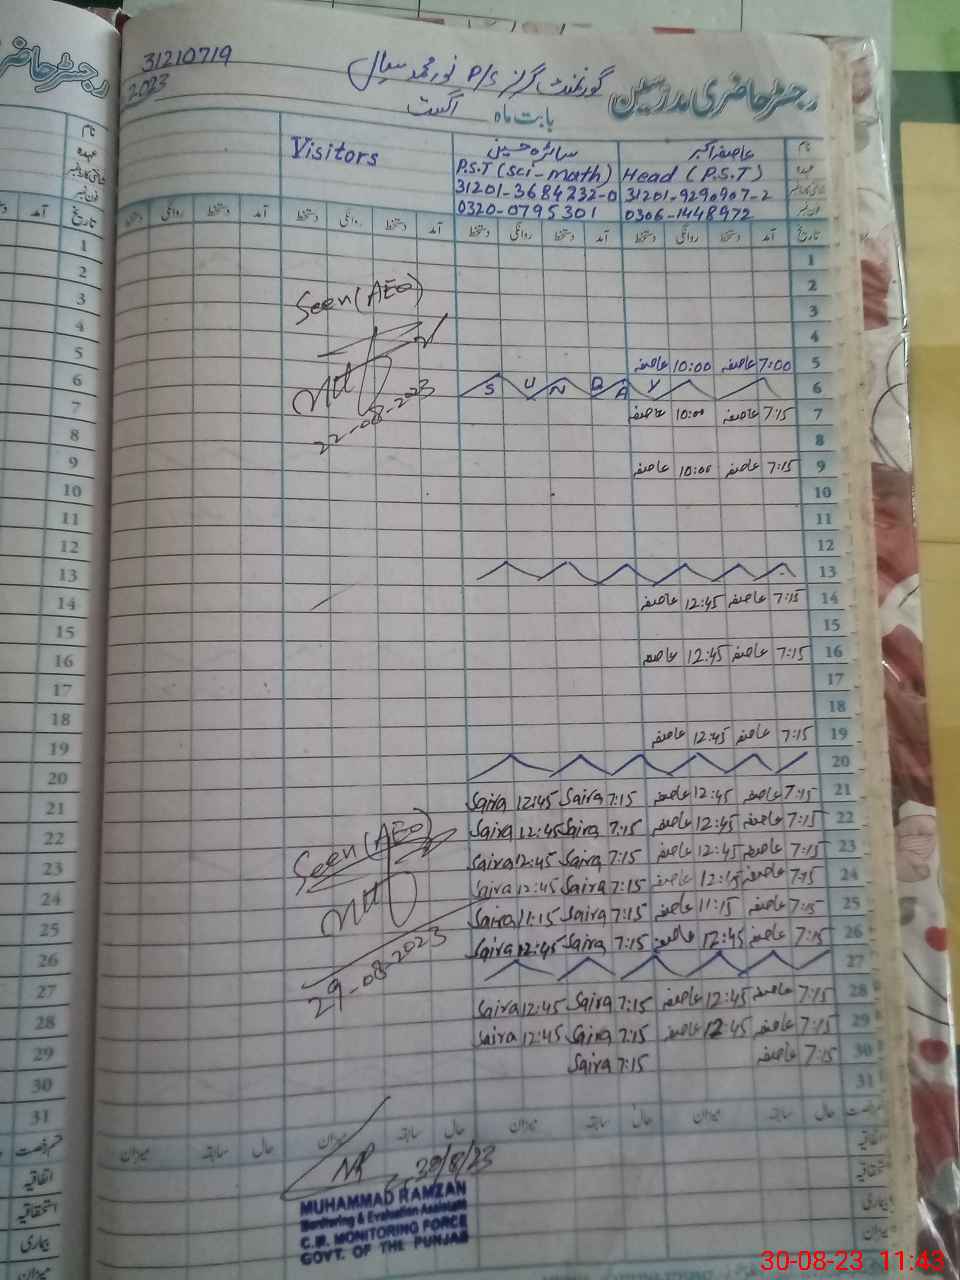 31210719
2023
گورنمنٹ گرلز P/S نور محمد سیال
رجسٹر حاضری مدرسین
بابت ماہ اگست
نام عاصفہ اکبر سائرہ حسین Visitors
عہدہ Head (P.S.T) P.S.T (Sci-math)
31201-9290907-2 31201-3684232-0
فون نمبر 0306-1448972 0320-0795301
تاریخ آمد دستخط روانگی دستخط آمد دستخط روانگی دستخط آمد دستخط روانگی دستخط آمد دستخط روانگی دستخط
1
2
3
4
5 7:00 عاصفہ 10:00 عاصفہ
6 SUNDAY
7 7:15 عاصفہ 10:00 عاصفہ
8
9 7:15 عاصفہ 10:00 عاصفہ
10
11
12
13
14 7:15 عاصفہ 12:45 عاصفہ
15
16 7:15 عاصفہ 12:45 عاصفہ
17
18
19 7:15 عاصفہ 12:45 عاصفہ
20
21 7:15 عاصفہ 12:45 عاصفہ 7:15 Saira 12:45 Saira
22 7:15 عاصفہ 12:45 عاصفہ 7:15 Saira 12:45 Saira
23 7:15 عاصفہ 12:45 عاصفہ 7:15 Saira 12:45 Saira
24 7:15 عاصفہ 12:45 عاصفہ 7:15 Saira 12:45 Saira
25 7:15 عاصفہ 11:15 عاصفہ 7:15 Saira 11:15 Saira
26 7:15 عاصفہ 12:45 عاصفہ 7:15 Saira 12:45 Saira
27
28 7:15 عاصفہ 12:45 عاصفہ 7:15 Saira 12:45 Saira
29 7:15 عاصفہ 12:45 عاصفہ 7:15 Saira 12:45 Saira
30 7:15 عاصفہ 7:15 Saira
31
حال سابقہ میزان حال سابقہ میزان حال سابقہ میزان حال سابقہ میزان
اتفاقیہ
استحقاقیہ
بیماری
میزان
Seen (AEO)
22-08-2023
Seen (AEO)
29-08-2023
30/8/23
MUHAMMAD RAMZAN
Monitoring & Evaluation Assistant
C.M. MONITORING FORCE
GOVT. OF THE PUNJAB
رجسٹر حاضر
نام
عہدہ
فون نمبر
تاریخ آمد
1
2
3
4
5
6
7
8
9
10
11
12
13
14
15
16
17
18
19
20
21
22
23
24
25
26
27
28
29
30
31
قسم رخصت
اتفاقیہ
استحقاقیہ
بیماری
میزان
30-08-23 11:43